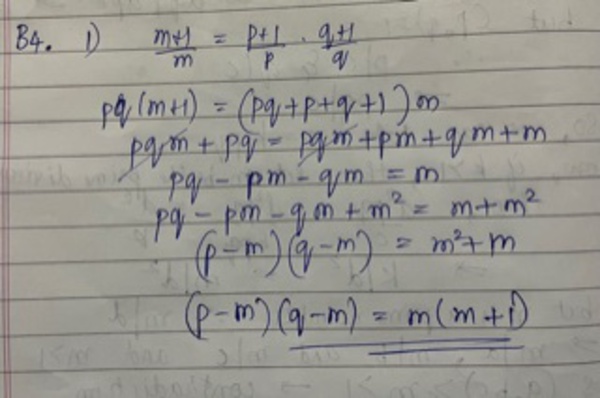 B4. 1) (m+1)/m = (p+1)/p · (q+1)/q
pq(m+1) = (pq+p+q+1)m
pqm + pq = pqm + pm + qm + m
pq - pm - qm = m
pq - pm - qm + m² = m + m²
(p-m)(q-m) = m²+m
(p-m)(q-m) = m(m+1)